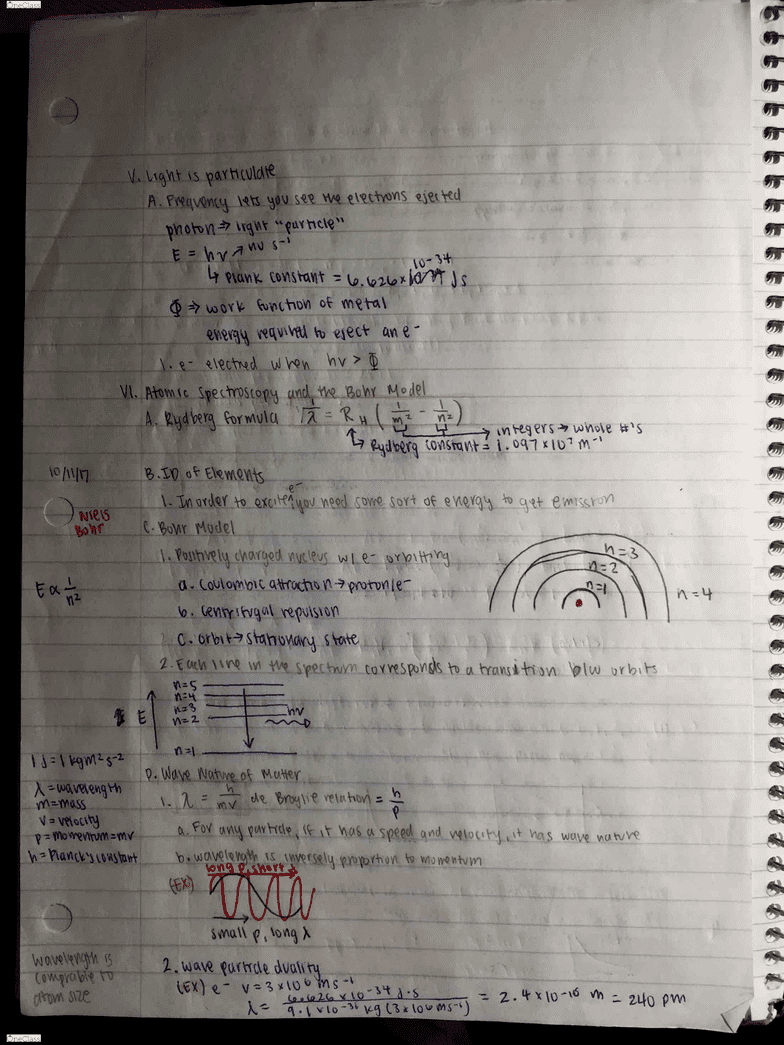 OneClass
V. Light is particulate
A. Frequency lets you see the electrons ejected
photon ⇒ light "particle"
E = hν ↗ nu s⁻¹
↳ Plank constant = 6.626 × 10⁻³⁴ Js
Φ ⇒ work function of metal
energy required to eject an e⁻
1. e⁻ elected when hν > Φ
VI. Atomic Spectroscopy and the Bohr Model
A. Rydberg formula 1/λ = R_H (1/m² - 1/n²)
integers → whole #'s
Rydberg constant = 1.097 × 10⁷ m⁻¹
10/11/17
B. ID of Elements
1. In order to excite e⁻, you need some sort of energy to get emission
Niels
Bohr
C. Bohr Model
1. Positively charged nucleus w/ e⁻ orbitting
n=3
n=2
n=1
n=4
E ∝ 1/n²
a. Coulombic attraction → proton/e⁻
b. Centrifugal repulsion
C. orbit → stationary state
2. Each line in the spectrum corresponds to a transition b/w orbits
n=5
n=4
n=3
hν
E
n=2
n=1
1 J = 1 kgm²s⁻²
D. Wave Nature of Matter
λ = wavelength
m = mass
1. λ = h/mv de Broglie relation = h/p
v = velocity
p = momentum = mv
a. For any particle, if it has a speed and velocity, it has wave nature
h = Planck's constant
b. wavelength is inversely proportion to momentum
long p, short λ
(EX)
small p, long λ
wavelength is
comprable to
atom size
2. wave particle duality
(EX) e⁻ v = 3 × 10⁶ ms⁻¹
λ = 6.626 × 10⁻³⁴ J·s / 9.1 × 10⁻³¹ kg (3 × 10⁶ ms⁻¹) = 2.4 × 10⁻¹⁰ m = 240 pm
OneClass